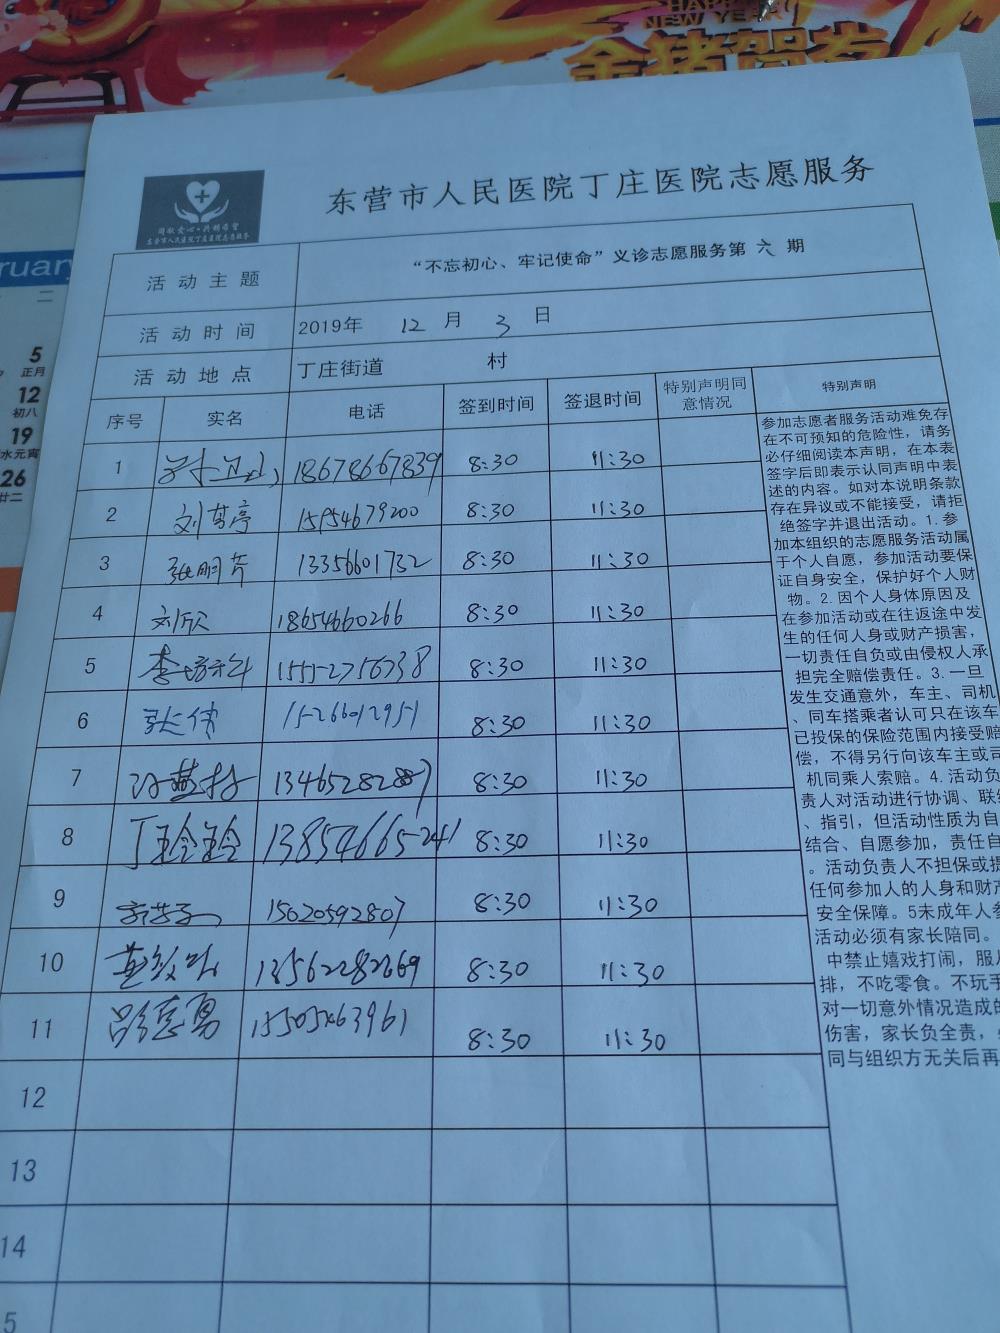 HAPPY
NEW YEAR
金猪贺岁
东营市人民医院丁庄医院志愿服务
活动主题
“不忘初心、牢记使命”义诊志愿服务第六期
活动时间
2019年 12月 3日
活动地点
丁庄街道 村
序号 实名 电话 签到时间 签退时间 特别声明同意情况 特别声明
1 18678667839 8:30 11:30
2 刘 亭 15154679200 8:30 11:30
3 张明芹 13356601732 8:30 11:30
4 刘欣 18654660266 8:30 11:30
5 李 15552756738 8:30 11:30
6 张伟 15266012951 8:30 11:30
7 8:30 11:30
8 丁玲玲 13854665241 8:30 11:30
9 15020592807 8:30 11:30
10 13562282669 8:30 11:30
11 8:30 11:30
12
13
14
5
参加志愿者服务活动难免存
在不可预知的危险性，请务
必仔细阅读本声明，在本表
签字后即表示认同声明中表
述的内容。如对本说明条款
存在异议或不能接受，请拒
绝签字并退出活动。1. 参
加本组织的志愿服务活动属
于个人自愿，参加活动要保
证自身安全，保护好个人财
物。2. 因个人身体原因及
在参加活动或在往返途中发
生的任何人身或财产损害，
一切责任自负或由侵权人承
担完全赔偿责任。3. 一旦
发生交通意外，车主、司机
、同车搭乘者认可只在该车
已投保的保险范围内接受赔
偿，不得另行向该车主或司
机同乘人索赔。4. 活动负
责人对活动进行协调、联络
、指引，但活动性质为自
结合、自愿参加，责任自
。活动负责人不担保或提
任何参加人的人身和财产
安全保障。5未成年人参
活动必须有家长陪同。
中禁止嬉戏打闹，服从
排，不吃零食。不玩手
对一切意外情况造成的
伤害，家长负全责，
同与组织方无关后再
ruary
二
5
正月
12
初八
19
元宵
26
廿二